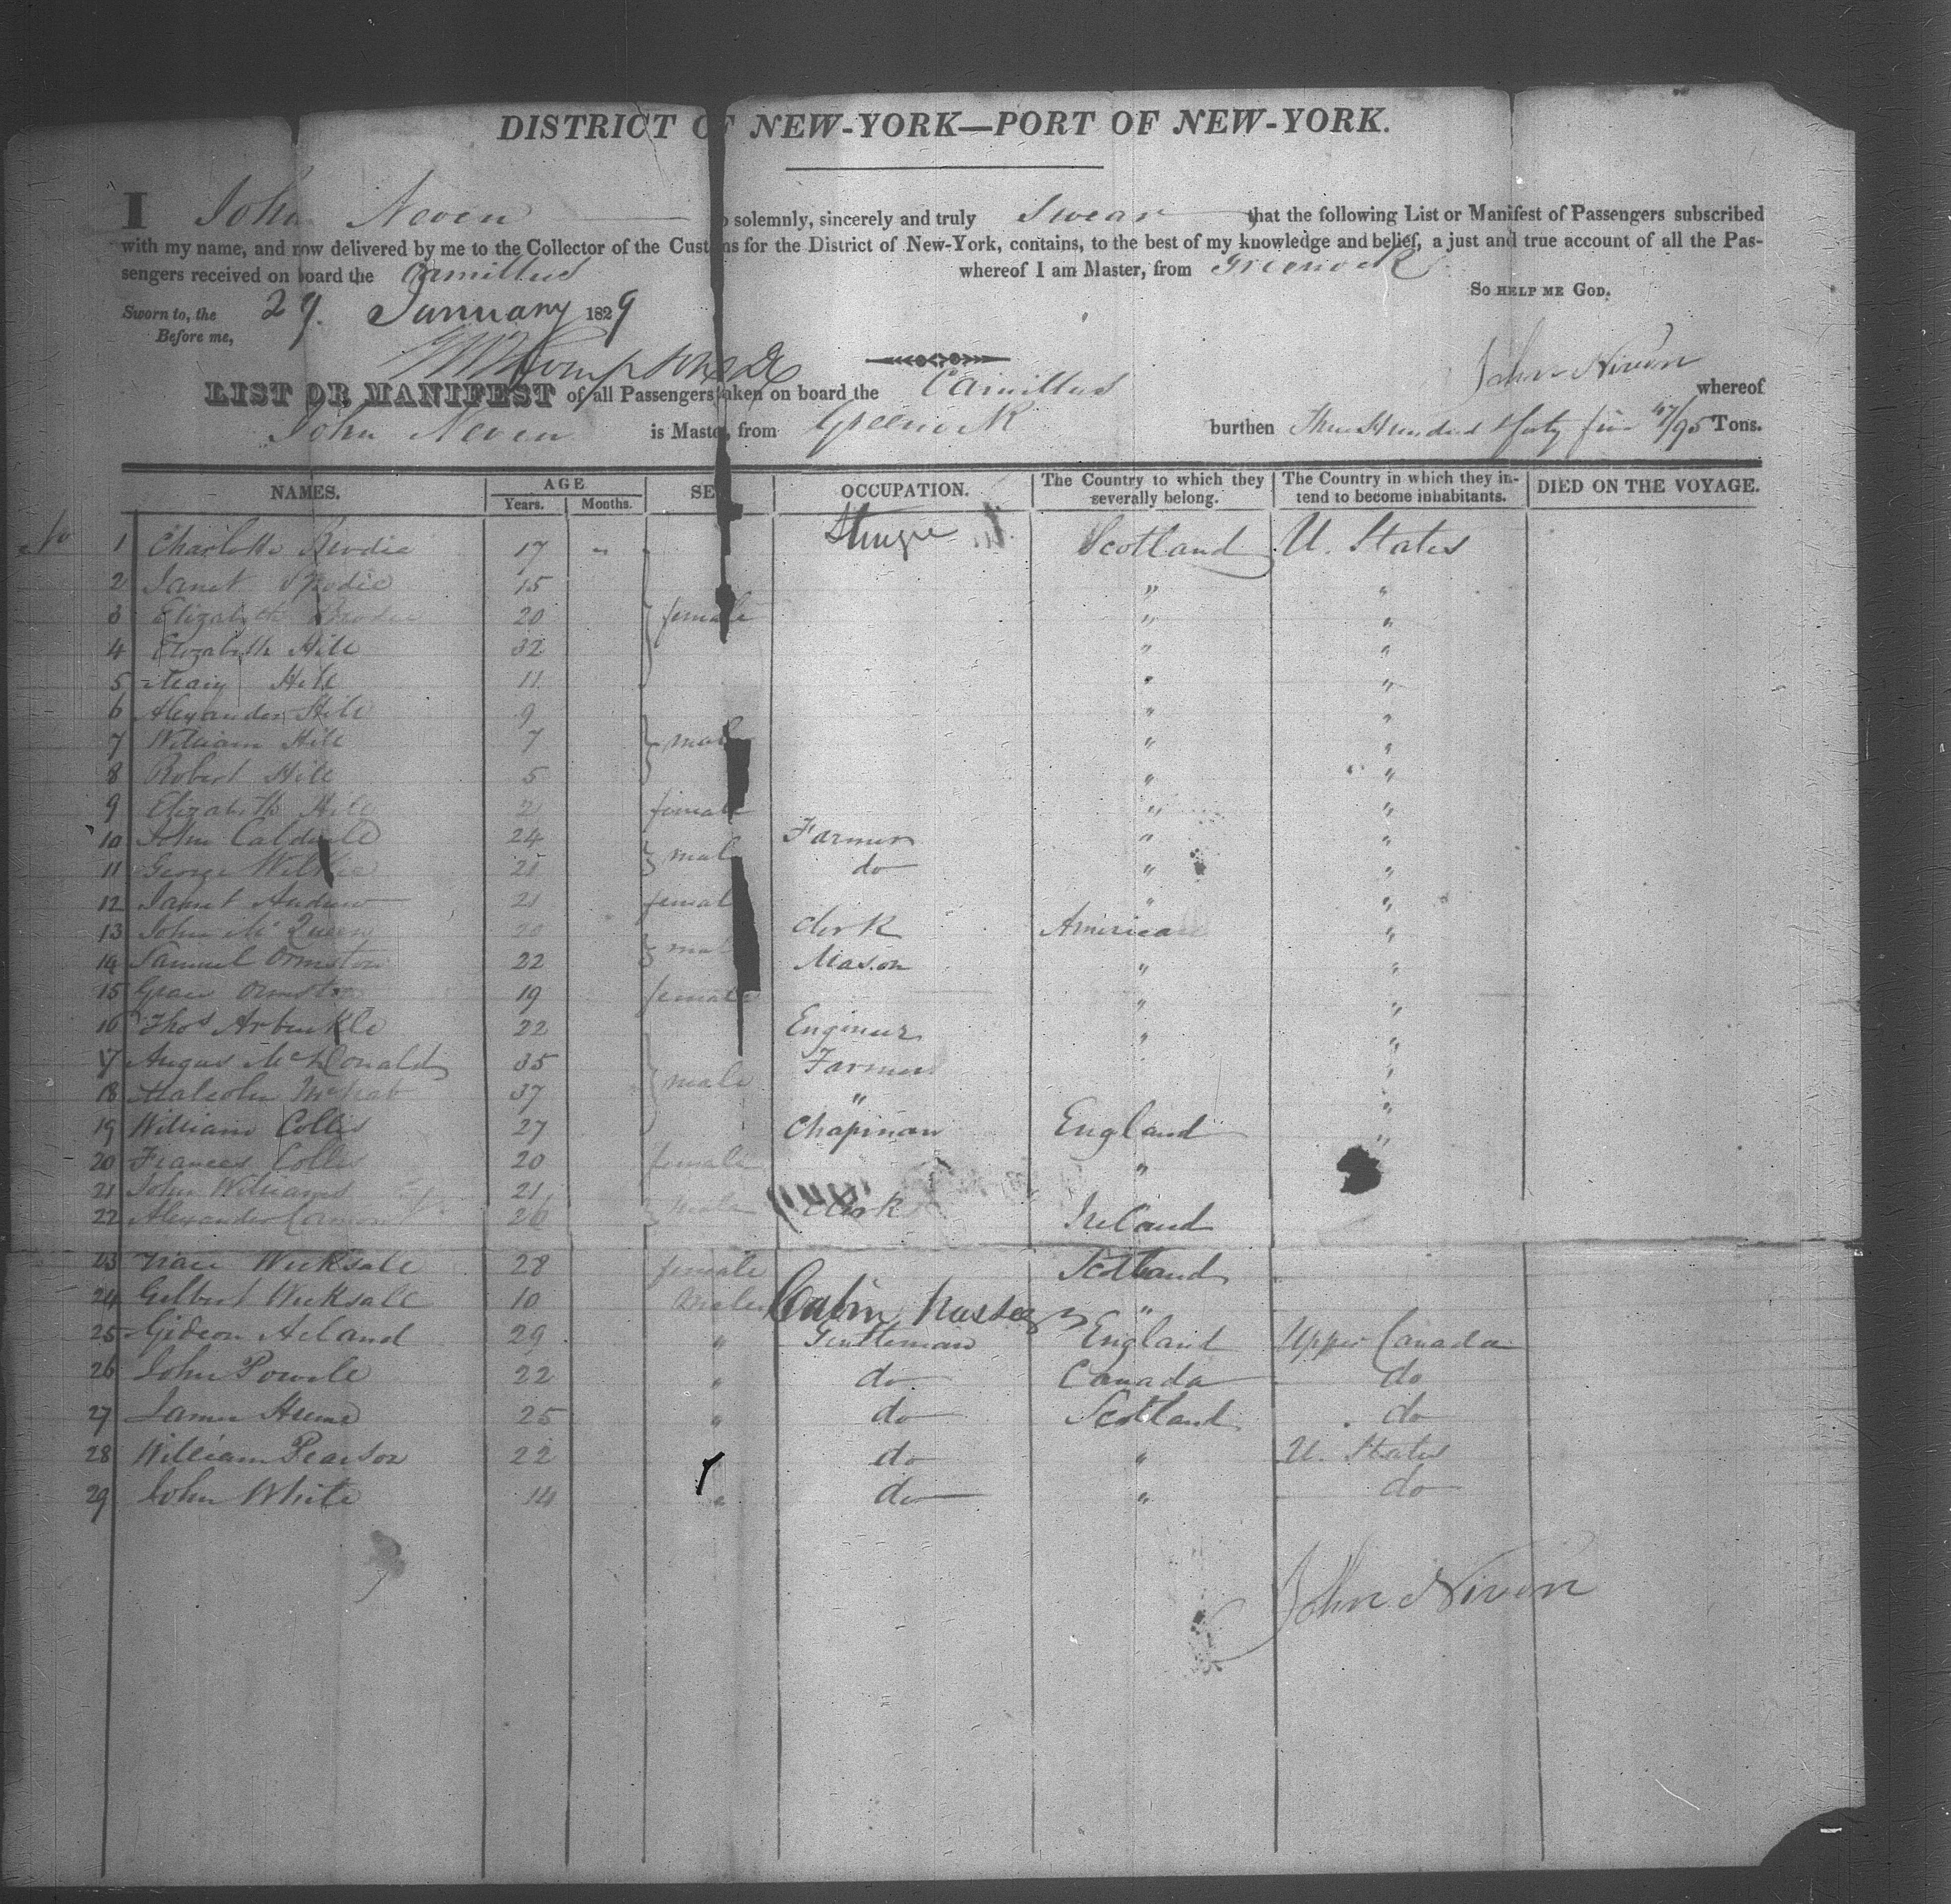 DISTRICT OF NEW-YORK—PORT OF NEW-YORK.
I John Neven solemnly, sincerely and truly Swear that the following List or Manifest of Passengers subscribed
with my name, and now delivered by me to the Collector of the Customs for the District of New-York, contains, to the best of my knowledge and belief, a just and true account of all the Pas-
sengers received on board the Camillus whereof I am Master, from Greenock
SO HELP ME GOD.
Sworn to, the 29. January 1829
Before me,
John Niven
LIST OR MANIFEST of all Passengers taken on board the Camillus whereof
John Neven is Master, from Greenock burthen Three Hundred & forty five 47/95 Tons.
NAMES. AGE SEX OCCUPATION. The Country to which they severally belong. The Country in which they in-tend to become inhabitants. DIED ON THE VOYAGE.
Years. Months.
1 Charlotte Brodie 17 " Scotland U. States
2 Janet Brodie 15 " "
3 Elizabeth Brodie 20 female " "
4 Elizabeth Hill 32 " "
5 Mary Hill 11 " "
6 Alexander Hill 9 " "
7 William Hill 7 male " "
8 Robert Hill 5 " "
9 Elizabeth Hill 2 female " "
10 John Caldwell 24 Farmer " "
11 George Wilkie 21 male do " "
12 Janet Andrew 21 female " "
13 John McQueen 20 Clerk America "
14 Samuel Ormston 22 male Mason " "
15 Grace Ormston 19 female " "
16 Thos Arbuckle 22 Engineer " "
17 Angus McDonald 35 male Farmer "
18 Malcolm McNab 37 " "
19 William Collis 27 Chapman England "
20 Frances Collis 20 female "
21 John Williams 21
22 Alexander 26 male Clerk Ireland
23 Wicksall 28 female Scotland
24 Gilbert Wicksall 10 Male "
Cabin
25 Gideon Acland 29 " Gentleman England Upper Canada
26 John Powell 22 " do Canada do
27 James Hume 25 " do Scotland do
28 William Pearson 22 do " U. States
29 John White 14 " do " do
John Niven